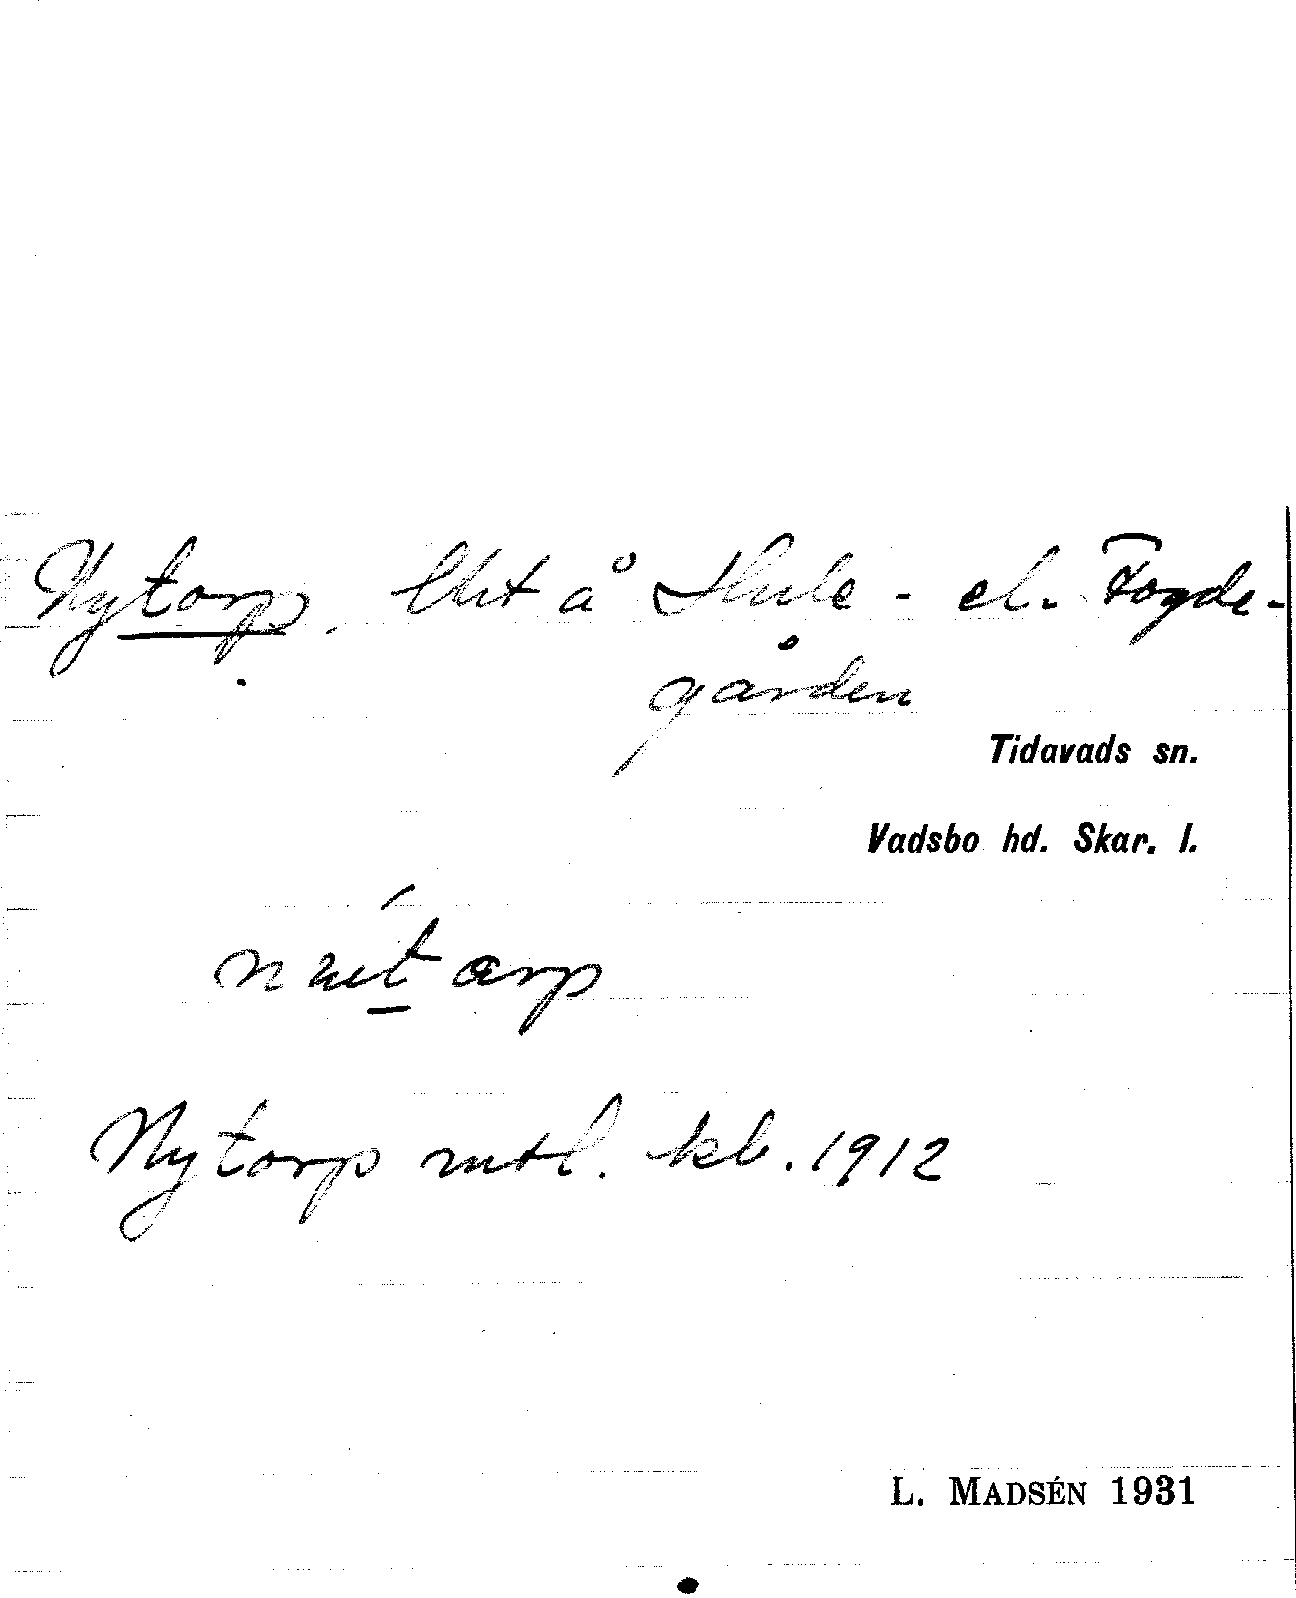 Nytorp. lht å Skule - el. Fogde-
gården
Tidavads sn.
Vadsbo hd. Skar. l.
Nytorp mtl. kb. 1912
L. MADSÉN 1931